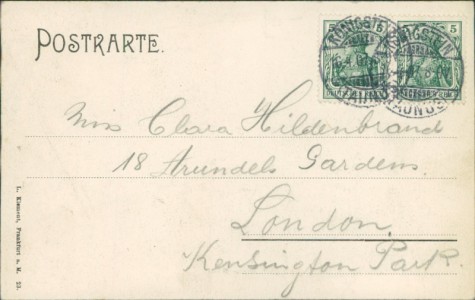 POSTKARTE.
5
KÖNIGSTEIN
Miss Clara Hildenbrand
18 Arundels Gardens.
London.
Kensington Park.
L. Klement, Frankfurt a. M. 23.